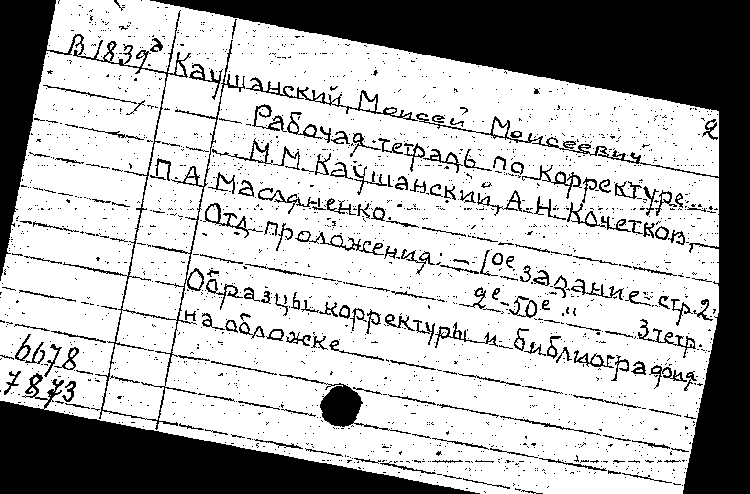 В 1839д Каушанский, Моисей Моисеевич 2
Рабочая тетрадь по корректуре...
М.М. Каушанский, А.Н. Кочетков,
П.А. Масляненко.
Отд. проложения: - 1ое задание - стр. 2.
2е-50е " 3 тетр.
Образцы корректуры и библиография
на обложке
6678
7873